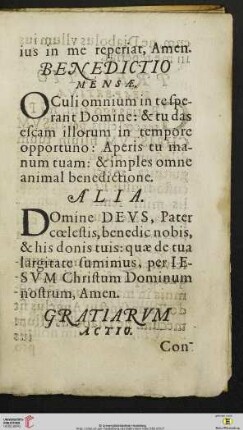 ius in me reperiat, Amen.
BENEDICTIO
MENSÆ.
OCuli omnium in te spe-
rant Domine: & tu das
escam illorum in tempore
opportuno: Aperis tu ma-
num tuam: & imples omne
animal benedictione.
ALIA.
DOmine DEVS, Pater
cœlestis, benedic nobis,
& his donis tuis: quæ de tua
largitate sumimus, per IE-
SVM Christum Dominum
nostrum, Amen.
GRATIARVM
ACTIO.
Con-